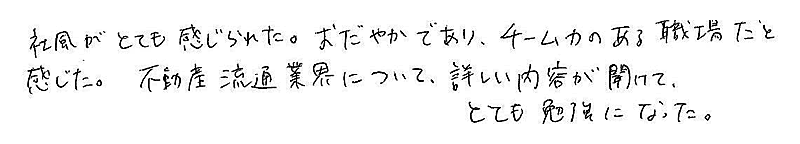 社風がとても感じられた。おだやかであり、チーム力のある職場だと
感じた。 不動産流通業界について、詳しい内容が聞けて、
とても勉強になった。